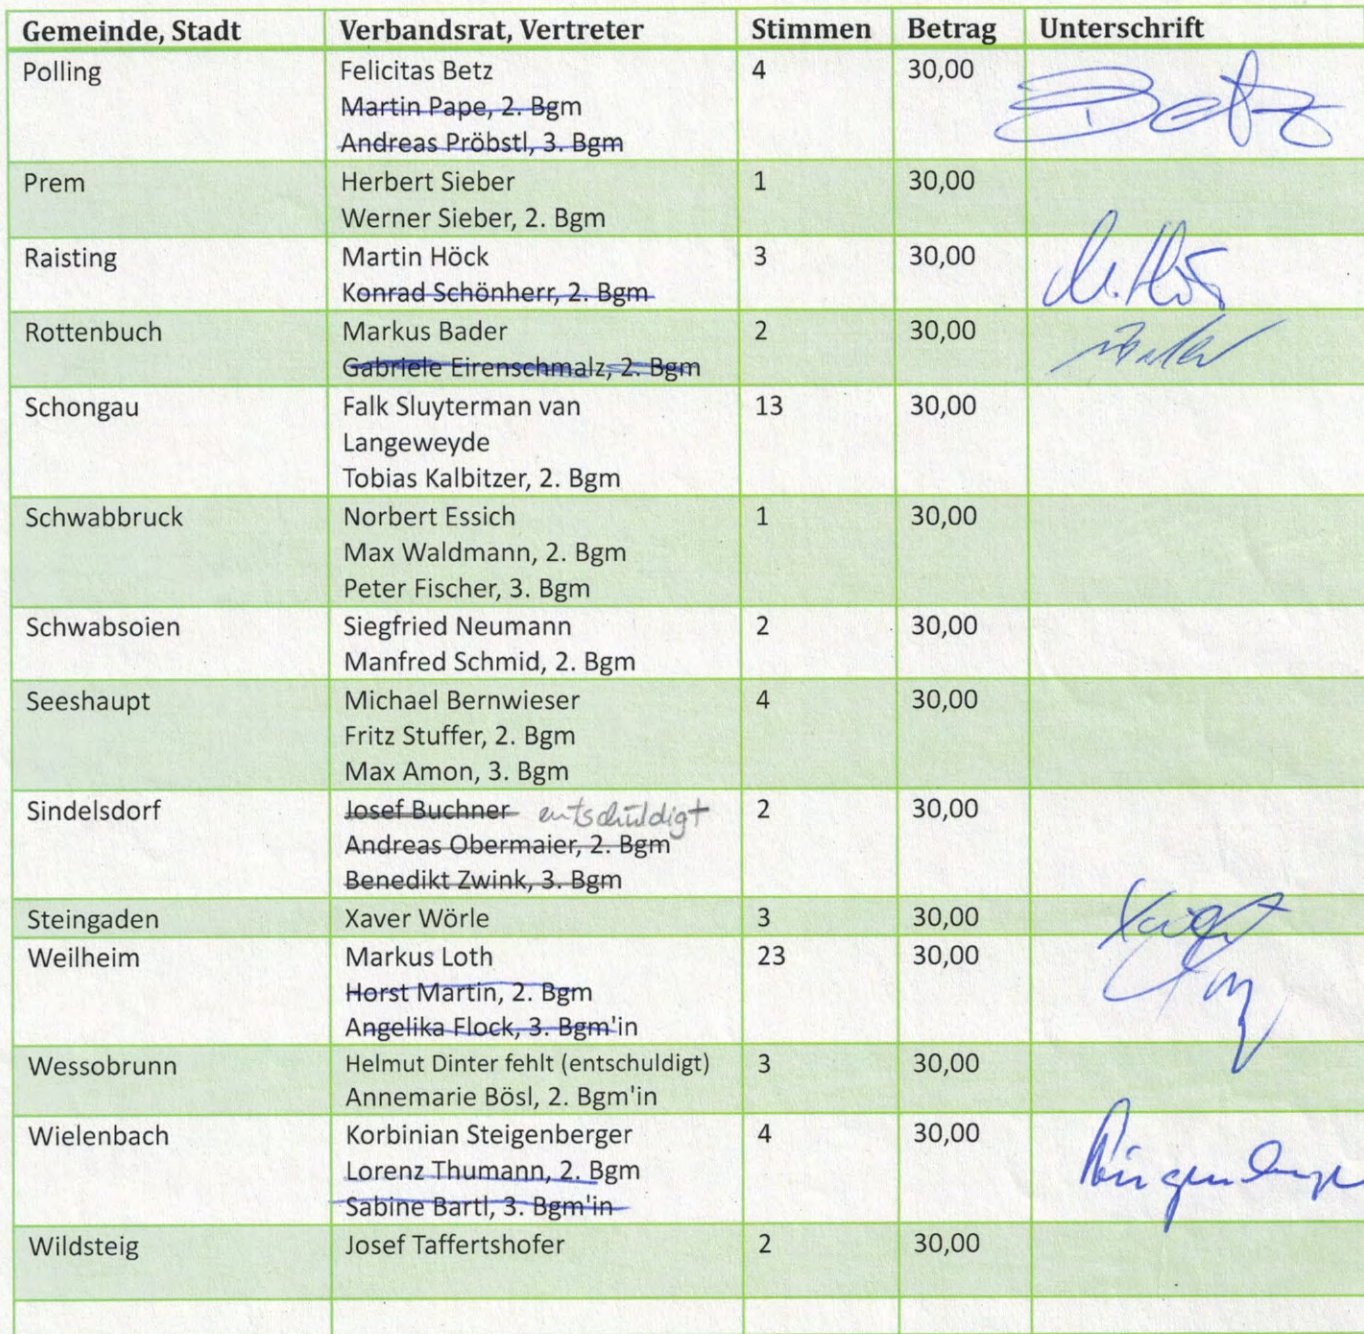 Gemeinde, Stadt Verbandsrat, Vertreter Stimmen Betrag Unterschrift
Polling Felicitas Betz 4 30,00 Betz
Martin Pape, 2. Bgm
Andreas Pröbstl, 3. Bgm
Prem Herbert Sieber 1 30,00
Werner Sieber, 2. Bgm
Raisting Martin Höck 3 30,00
Konrad Schönherr, 2. Bgm
Rottenbuch Markus Bader 2 30,00
Gabriele Eirenschmalz, 2. Bgm
Schongau Falk Sluyterman van 13 30,00
Langeweyde
Tobias Kalbitzer, 2. Bgm
Schwabbruck Norbert Essich 1 30,00
Max Waldmann, 2. Bgm
Peter Fischer, 3. Bgm
Schwabsoien Siegfried Neumann 2 30,00
Manfred Schmid, 2. Bgm
Seeshaupt Michael Bernwieser 4 30,00
Fritz Stuffer, 2. Bgm
Max Amon, 3. Bgm
Sindelsdorf Josef Buchner entschuldigt 2 30,00
Andreas Obermaier, 2. Bgm
Benedikt Zwink, 3. Bgm
Steingaden Xaver Wörle 3 30,00
Weilheim Markus Loth 23 30,00
Horst Martin, 2. Bgm
Angelika Flock, 3. Bgm'in
Wessobrunn Helmut Dinter fehlt (entschuldigt) 3 30,00
Annemarie Bösl, 2. Bgm'in
Wielenbach Korbinian Steigenberger 4 30,00
Lorenz Thumann, 2. Bgm
Sabine Bartl, 3. Bgm'in
Wildsteig Josef Taffertshofer 2 30,00